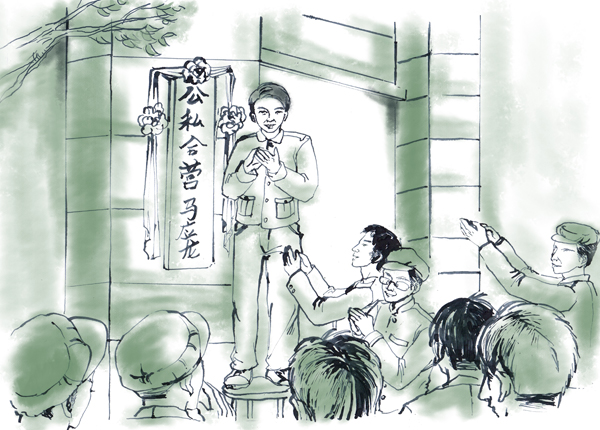 公私合营马应龙